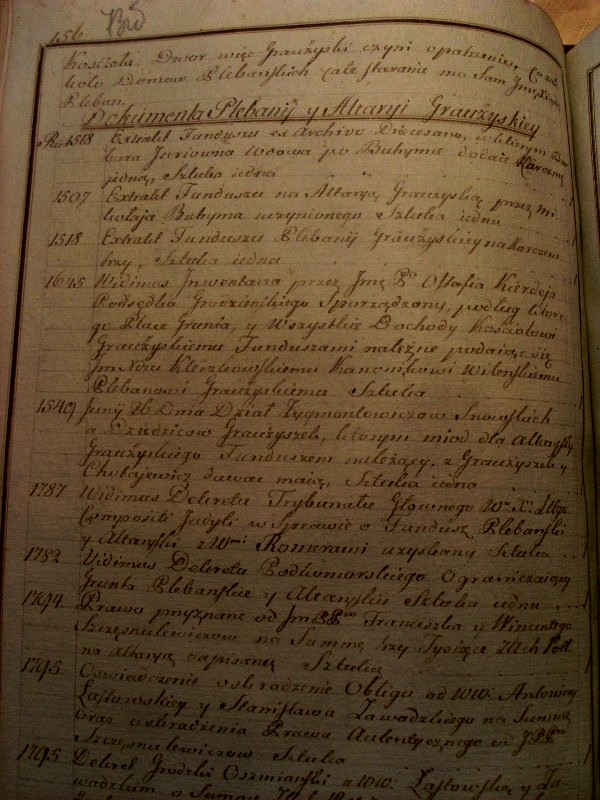 156 Bró
Kościoła. Dwor więc Graużyski czyni opatrzenie, około
koło Domow Plebańskich całe staranie ma Sam Jmć Xiądz
Pleban.
Dokumenta Plebanij y Altaryi Graużyskiey
Ru 1518 Extrakt Funduszu ex Archivo Dioecesano, w którym Bar
bara Juriowna Wdowa po Buhymie dodaie Karczmę
iedną, Sztuka iedna
1507 Extrakt Funduszu na Altaryą Grauzyską przez Mi
kołaja Buhyma uczynionego Sztuka iedna
1518. Extrakt Funduszu Plebanij Grauzyskiey na Karczem
trzy, Sztuka iedna
1645 Widimus Inwentarza przez Jmć Pa Ostafia Kierdeja
Podsędka Grodzieńskiego Sporządzony, podług które
go Place Grunta, y Wszystkie Dochody Kościołowi
Grauzyskiemu Funduszami należne podaiąc się
Jm Xdzu Kleczkowskiemu Kanonikowi Wileńskiemu
Plebanowi Grauzyskiemu Sztuka
1540 Junij 26 Dnia Dział Zygmontowiczow Snowskich
a Dziedzicow Grauzyszek, ktorym miod dla Altarysty
Grauzyskiego Funduszem należący, z Grauzyszek y
Chotajewicz dawać maią, Sztuka iedna
1787 Widimus Dekretu Trybunału Głownego W. X. Litgo
Compositi Judycij w Sprawie o Fundusz Plebański
y Altaryski z Wmi Romerami uzyskany Sztuka
1782 Vidimus Dekretu Podkomorskiego Ograniczaiący
Grunta Plebańskie y Altaryskie Sztuka iedna
1794 Prawo przyznane od Jm PPow Franciszka y Wincentego
Szczęsnulewiczow na Summę trzy Tysiące Złtch Pol.
na Altaryą zapisaną Sztuka
1795 Oswiadczenie o skradzenie Obligu od WW: Antoniny
Zajtowskiey y Stanisława Zawadzkiego na Summę
oraz o skradzenia Prawa Autentycznego od JPPow
Szczęsnulewiczow Sztuka
1795 Dekret Grodzki Oszmianski z WW: Zajtowską y Za
wadzkim o Summę